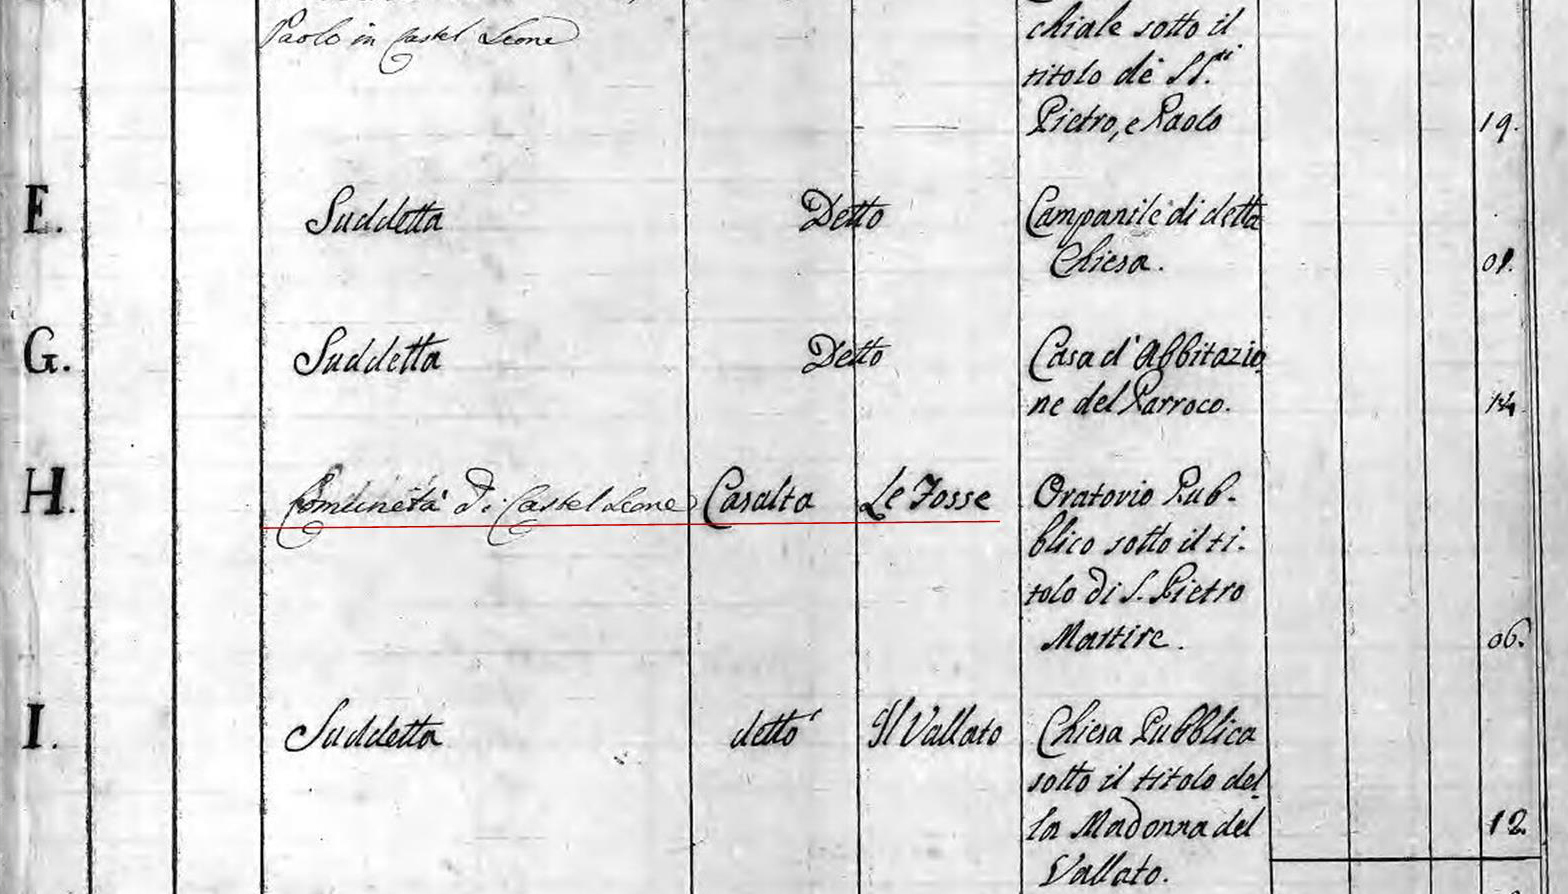 Paolo in Castel Leone
chiale sotto il
titolo de' SS.ti
Pietro, e Paolo 19.
F. Suddetta Detto Campanile di detta
Chiesa. 01.
G. Suddetta Detto Casa d'Abbitazio
ne del Parroco. 14
H. Comunetà Di Castel Leone Casalta Le Fosse Oratorio Pub-
blico sotto il ti-
tolo Di S. Pietro
Martire. 06.
I. Suddetta detto Il Vallato Chiesa Pubblica
sotto il titolo del
la Madonna del 12.
Vallato.